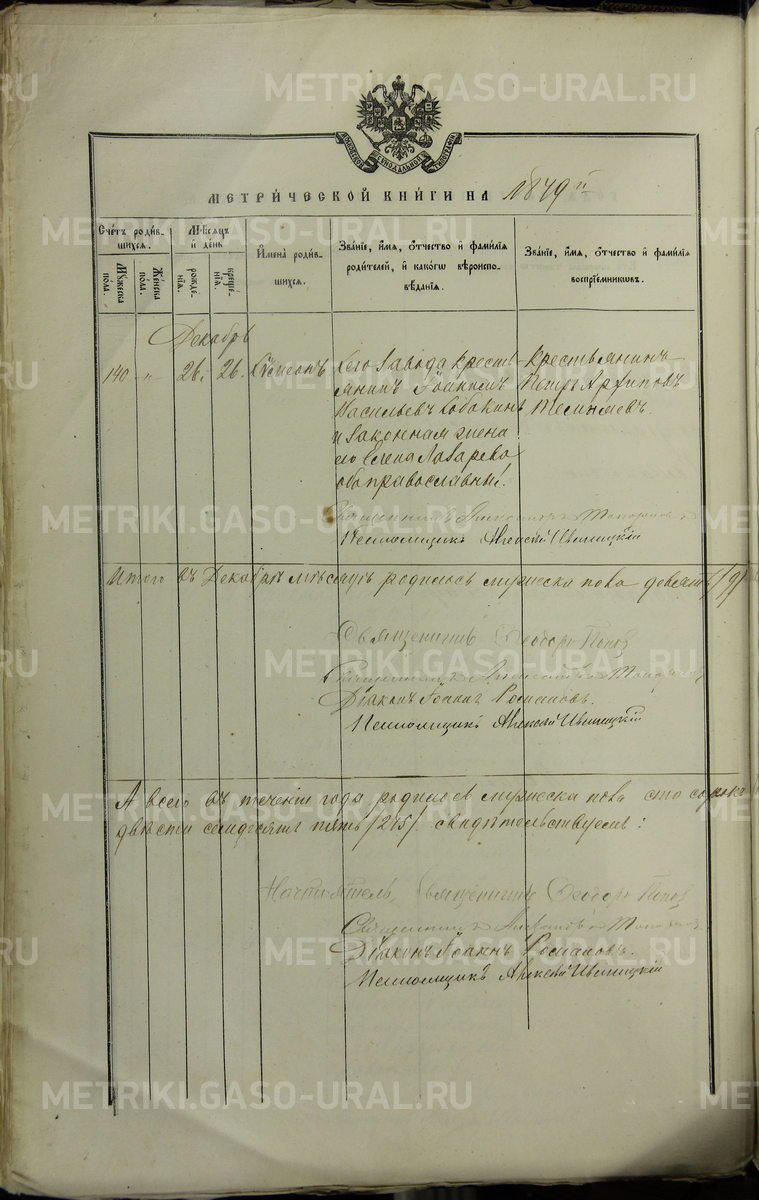 METRIKI.GASO-URAL.RU
МЕТРИ́ЧЕСКОЙ КНИ́ГИ НА 1879 й
Сче́тъ роди́вшихся.
Му́жеска пола.
Же́нска пола.
Мѣ́сяцъ и день
рожде́нїѧ.
креще́нїѧ.
Имена̀ роди́вшихся.
Зва́нїе, и́мя, ѻ́тчество и фами́лїя родителей, и како́гѡ вѣроисповѣ́данїѧ.
Зва́нїе, и́мя, ѻ́тчество и фами́лїя воспрїе́мниковъ.
Декабрь
140 " 26. 26. Сѵмеонъ
Сего завода кресть
янинъ Іоакимъ
Васильевъ Собакинъ
и законная жена
его Елена Лазарева
оба православные.
Крестьянинъ
Петръ Архиповъ
Священникъ
Псаломщикъ Алексѣй
Итого въ Декабрѣ мѣсяцѣ родилось мужеска пола девять /9/
Священникъ Ѳеодоръ Поповъ
Священникъ
Діаконъ Іоаннъ Романовъ.
Псаломщикъ Алексѣй
А всего въ теченіи года родилось мужеска пола сто сорокъ
двѣсти семдесятъ пять /275/ свидѣтельствуемъ:
Настоятель, Священникъ Ѳеодоръ Поповъ
Священникъ
Діаконъ Іоаннъ Романовъ.
Псаломщикъ Алексѣй